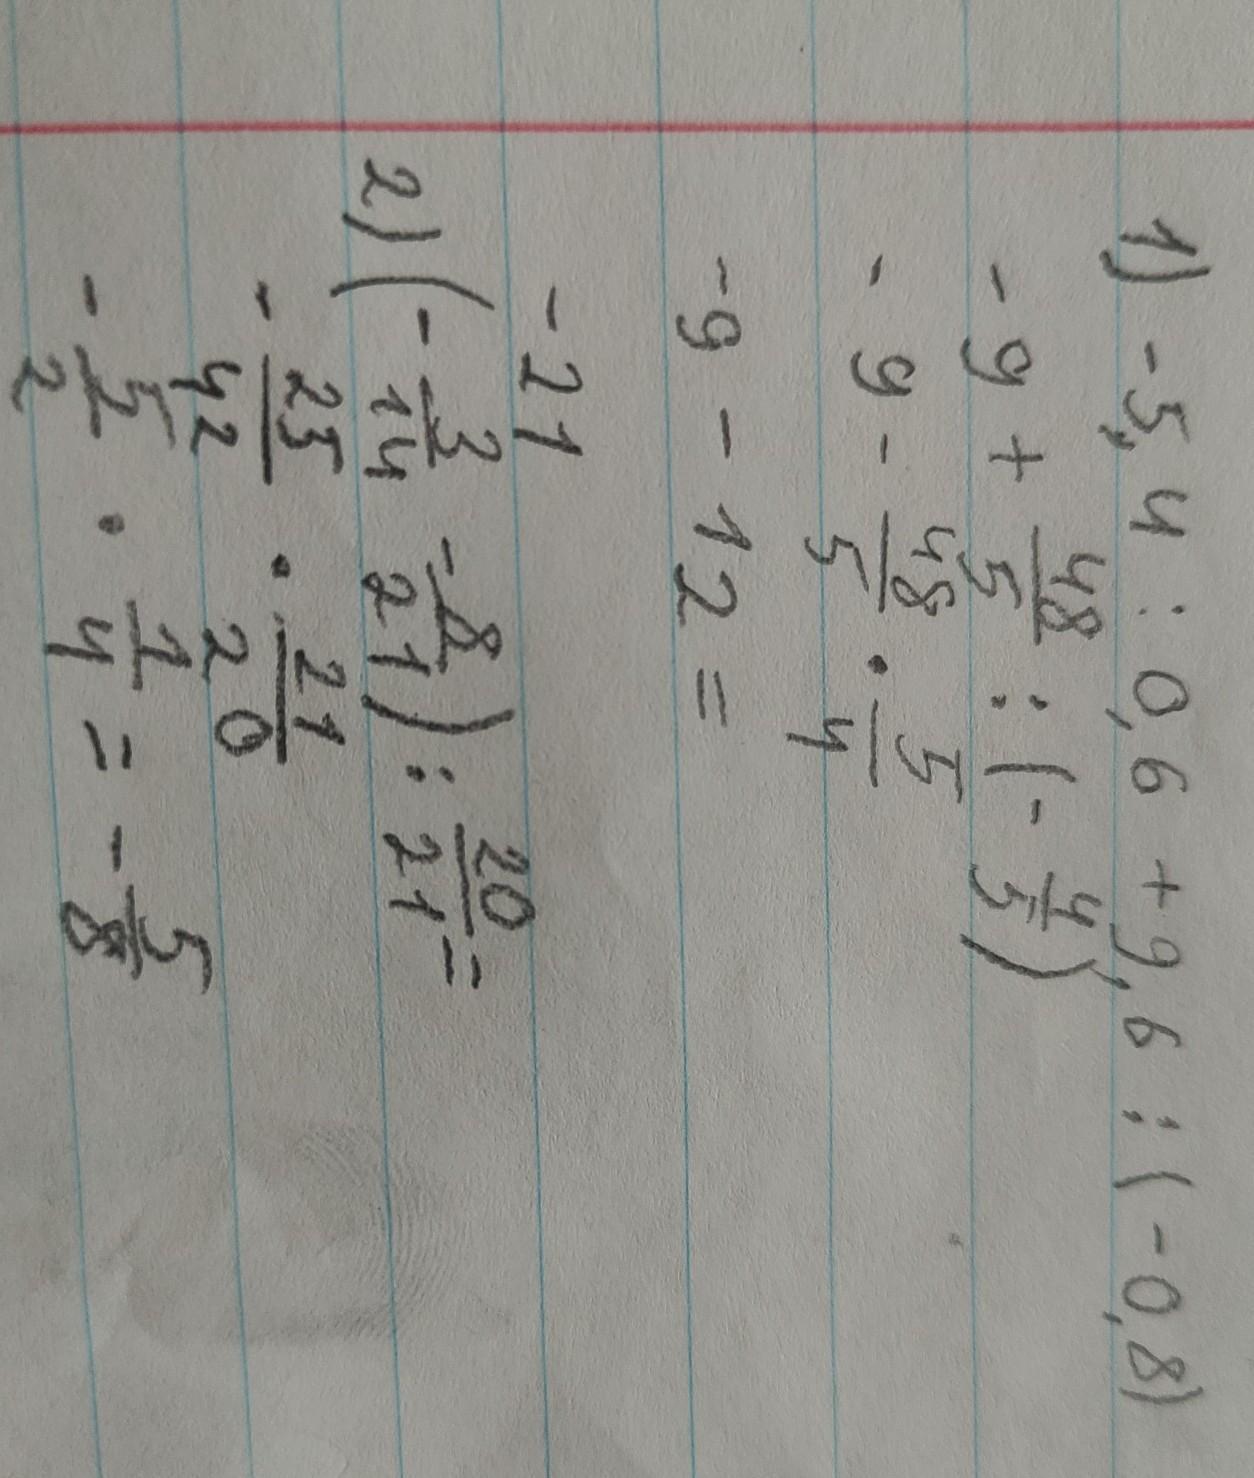 1) -5,4 : 0,6 + 9,6 : (-0,8)
- 9 + 48/5 : (- 4/5)
- 9 - 48/5 · 5/4
-9 - 12 =
- 21
2) (- 3/14 - 8/21) : 20/21 =
- 25/42 · 21/20
- 5/2 · 1/4 = - 5/8